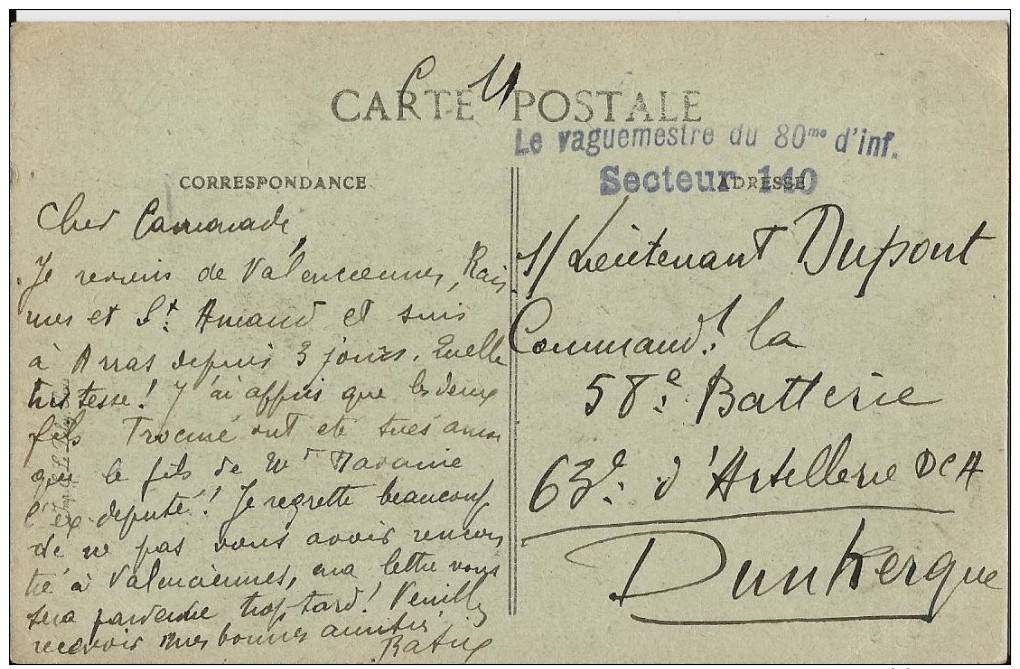 CARTE POSTALE
Le vaguemestre du 80me d'inf.
Secteur 140
CORRESPONDANCE
ADRESSE
Cher Camarade,
Je reviens de Valenciennes, Rais
mes et St. Amand et suis
à Arras depuis 3 jours. Quelle
tristesse! J'ai appris que les deux
fils ont été tués ainsi
que le fils de Mr
l'ex député! Je regrette beaucoup
de ne pas vous avoir rencon
tré à Valenciennes, ma lettre vous
sera parvenue trop tard! Veuillez
recevoir mes bonnes amitiés.
S/Lieutenant Dupont
Command.t la
58e. Batterie
63e. d'Artillerie DCA
Dunkerque